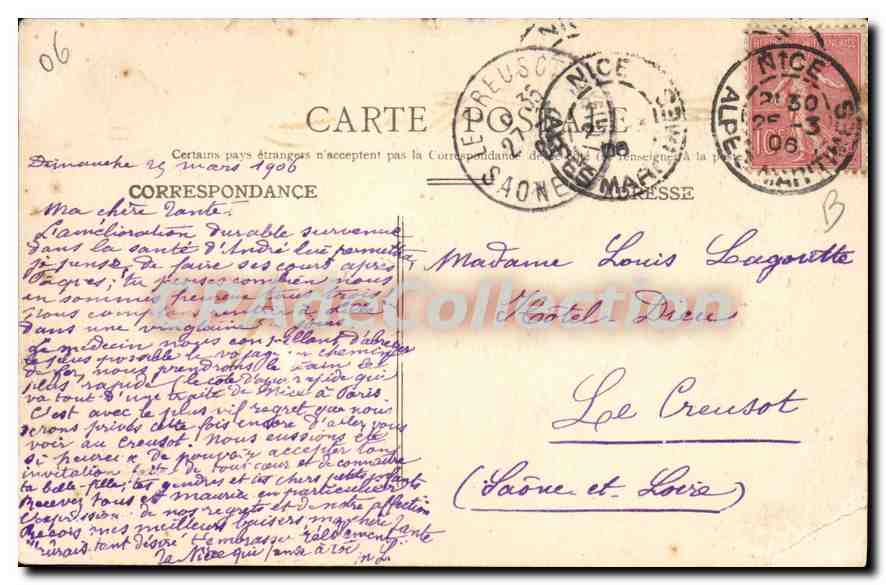 06
CARTE POSTALE
Certains pays étrangers n'acceptent pas la Correspondance de ce côté (se renseigner à la poste)
CORRESPONDANCE
ADRESSE
Dimanche 25 mars 1906
Ma chère Tante.
L'amélioration durable survenue
dans la santé d'André lui permettra,
je pense, de faire ses cours après
Pâques; tu penses combien nous
en sommes
Nous
dans une vingtaine
Le médecin nous conseillant d'abréger
le plus possible le voyage en chemin
de fer, nous prendrons le train le
plus rapide (le côte d'azur rapide qui
va tout d'une traite de Nice à Paris.
C'est avec le plus vif regret que nous
serons privés cette fois encore d'aller vous
voir au Creusot. Nous eussions été
si heureux de pouvoir accepter ton
invitation de tout cœur et de connaître
ta belle-fille, tes gendres et tes chers petits enfants
Recevez tous et Maurice en particulier
l'expression de nos regrets et de notre affection
Reçois mes meilleurs baisers ma chère Tante
j'aurais tant désiré t'embrasser réellement
ta Nièce qui pense à toi
Madame Louis Lagoutte
Hôtel-Dieu
Le Creusot
(Saône-et-Loire)
B
LE CREUSOT
SAONE
27
NICE
ALPES MARITIMES
06
NICE
ALPES MARITIMES
2130
25-3
06
REPUBLIQUE FRANÇAISE
10c
CPAdeCollection